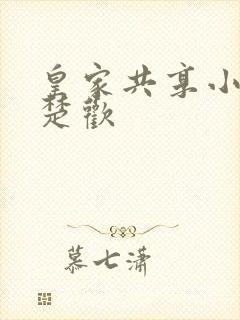 皇家共享小
楚歡
慕七潇